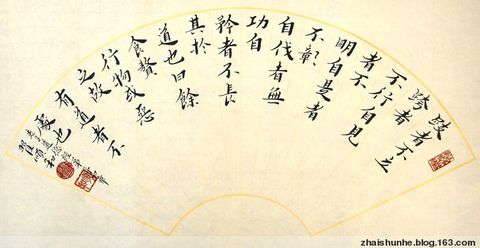 跂者不立
跨者
不行自見
者不
明自是者
不彰
自伐者無
功自
矜者不長
其於
道也曰餘
食贅
行物或惡
之故
有道者不
處也
老子道德經
翟順和
zhaishunhe.blog.163.com